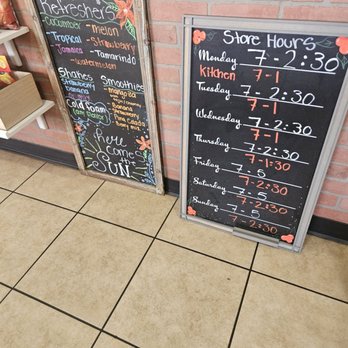 Refreshers
Cucumber
Tropical
Jamaica
- Melon
- Strawberry
- Tamarindo
- Watermelon
Shakes
Strawberry
Banana
Smoothies
- Mangonea
Cold Foam
- Banana
- Strawberry
- Pina Colada
- Berry mix
Here
Come
the
SUN
Store Hours
Monday 7-2:30
Kitchen 7-1
Tuesday 7-2:30
7-1
Wednesday 7-2:30
7-1
Thursday 7-2:30
7-1:30
Friday 7-5
7-2:30
Saturday 7-5
7-2:30
Sunday 7-5
7-2:30